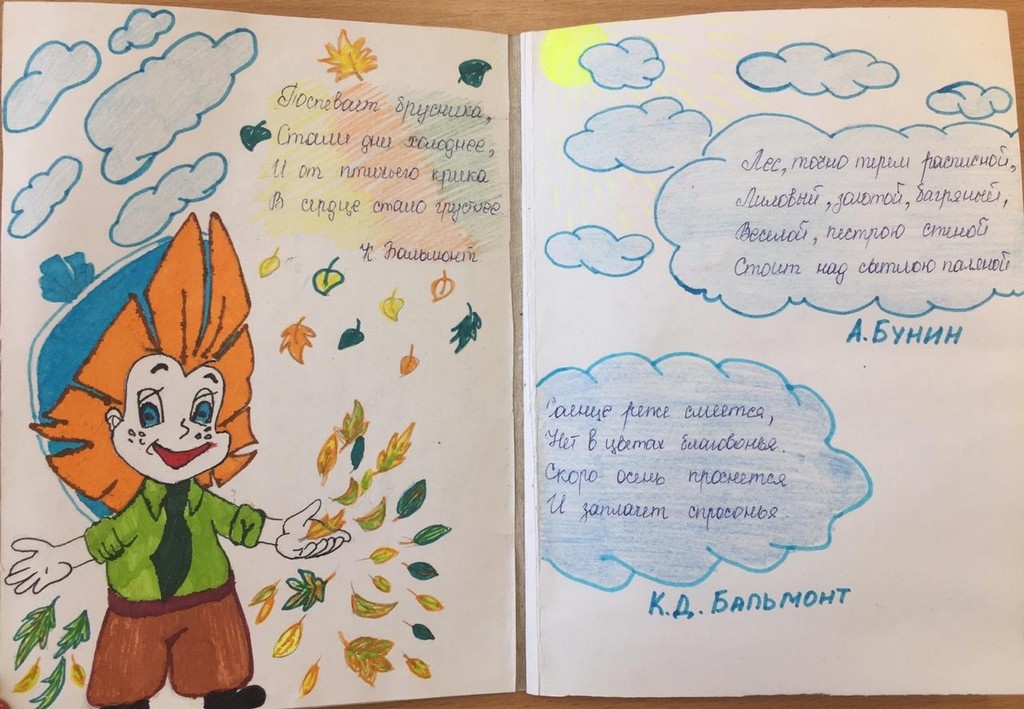 Поспевает брусника,
Стали дни холоднее,
И от птичьего крика
В сердце стало грустнее
К Бальмонт
Лес, точно терем расписной,
Лиловый, золотой, багряный,
Веселой, пестрою стеной
Стоит над светлою паляной
А. БУНИН
Солнце реже смеется,
Нет в цветах благовонья.
Скоро осень проснется
И заплачет спросонья.
К.Д. БАЛЬМОНТ